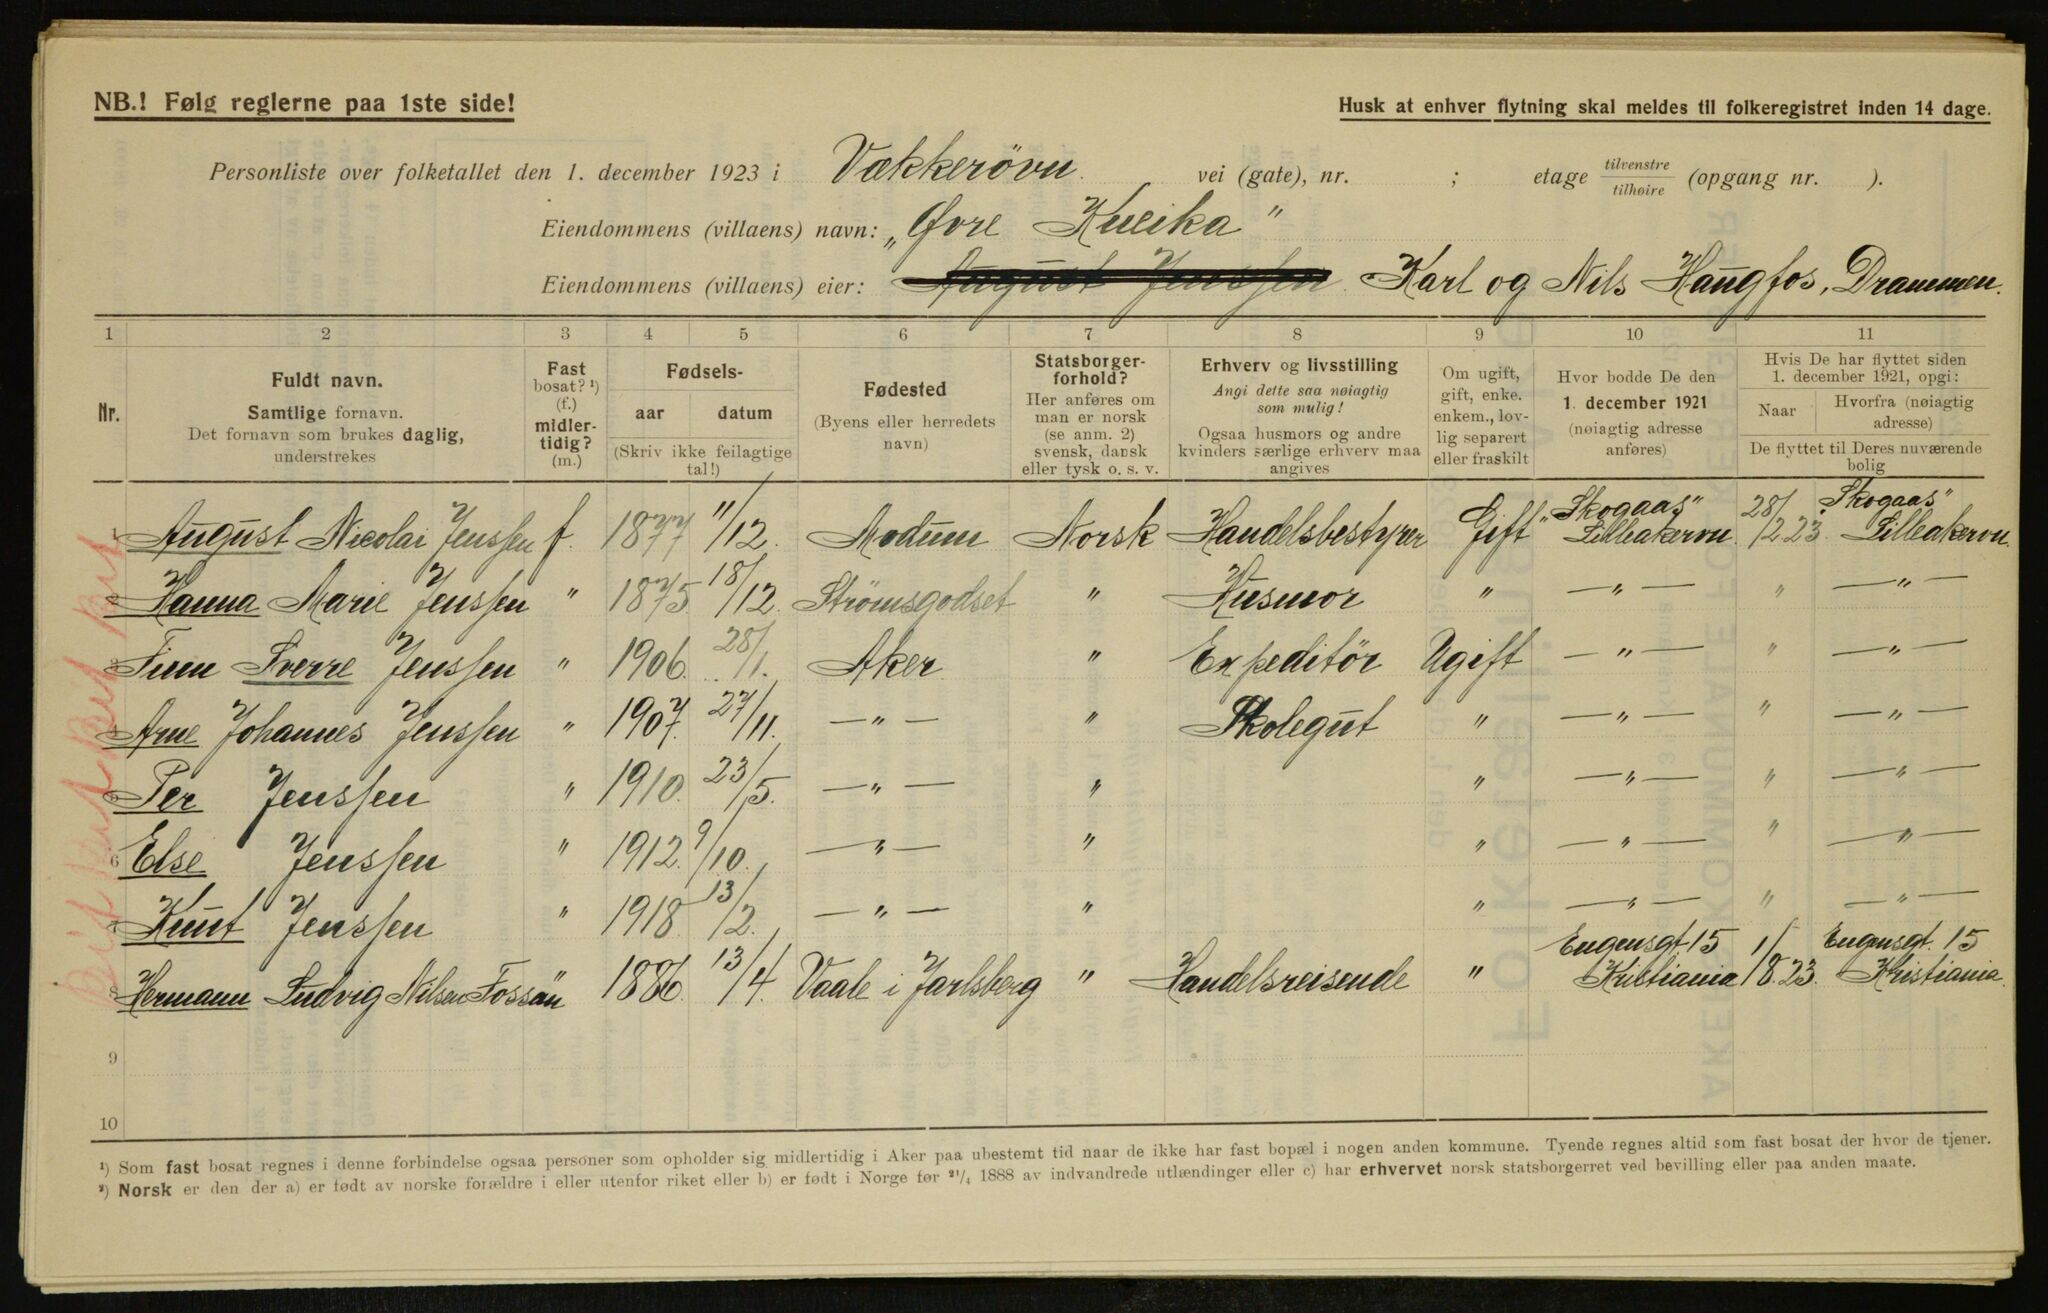 NB.! Følg reglerne paa 1ste side!
Husk at enhver flytning skal meldes til folkeregistret inden 14 dage.
Personliste over folketallet den 1. december 1923 i Vækkerövn. vei (gate), nr. ; etage tilvenstre tilhøire (opgang nr. ).
Eiendommens (villaens) navn: „Øvre Kneika"
Eiendommens (villaens) eier: August Jenssen Karl og Nils Haugfos, Drammen.
1 2 3 4 5 6 7 8 9 10 11
Nr.
Fuldt navn.
Samtlige fornavn.
Det fornavn som brukes daglig,
understrekes
Fast
bosat? ¹)
(f.)
midler-
tidig?
(m.)
Fødsels-
aar datum
(Skriv ikke feilagtige
tal!)
Fødested
(Byens eller herredets
navn)
Statsborger-
forhold?
Her anføres om
man er norsk
(se anm. 2)
svensk, dansk
eller tysk o. s. v.
Erhverv og livsstilling
Angi dette saa nøiagtig
som mulig!
Ogsaa husmors og andre
kvinders særlige erhverv maa
angives
Om ugift,
gift, enke.
enkem., lov-
lig separert
eller fraskilt
Hvor bodde De den
1. december 1921
(nøiagtig adresse
anføres)
Hvis De har flyttet siden
1. december 1921, opgi:
Naar Hvorfra (nøiagtig
adresse)
De flyttet til Deres nuværende
bolig
1 August Nicolai Jenssen f. 1877 11/12. Modum Norsk Handelsbestyrer Gift „Skogaas" Lilleakervn. 28/2 23. „Skogaas" Lilleakervn.
2 Hanna Marie Jenssen " 1875 18/12. Strömsgodset " Husmor " —"— " —"—
3 Finn Sverre Jenssen " 1906. 28/1. Aker " Expeditör Ugift —"— " —"—
4 Arne Johannes Jenssen " 1907. 27/11. —"— " Skolegut " —"— " —"—
5 Per Jenssen " 1910. 23/5. —"— " " —"— " —"—
6 Else Jenssen " 1912. 9/10. —"— " " —"— " —"—
7 Knut Jenssen " 1918. 13/2. —"— " " —"— " —"—
8 Hermann Ludvig Nilsen Fossan " 1886. 13/4. Vaale i Jarlsberg " Handelsreisende " Eugensgt 15 Kristiania 1/8 23. Eugensgt. 15 Kristiania.
9
10
¹) Som fast bosat regnes i denne forbindelse ogsaa personer som opholder sig midlertidig i Aker paa ubestemt tid naar de ikke har fast bopæl i nogen anden kommune. Tyende regnes altid som fast bosat der hvor de tjener.
²) Norsk er den der a) er født av norske forældre i eller utenfor riket eller b) er født i Norge før ²¹/₄ 1888 av indvandrede utlændinger eller c) har erhvervet norsk statsborgerret ved bevilling eller paa anden maate.